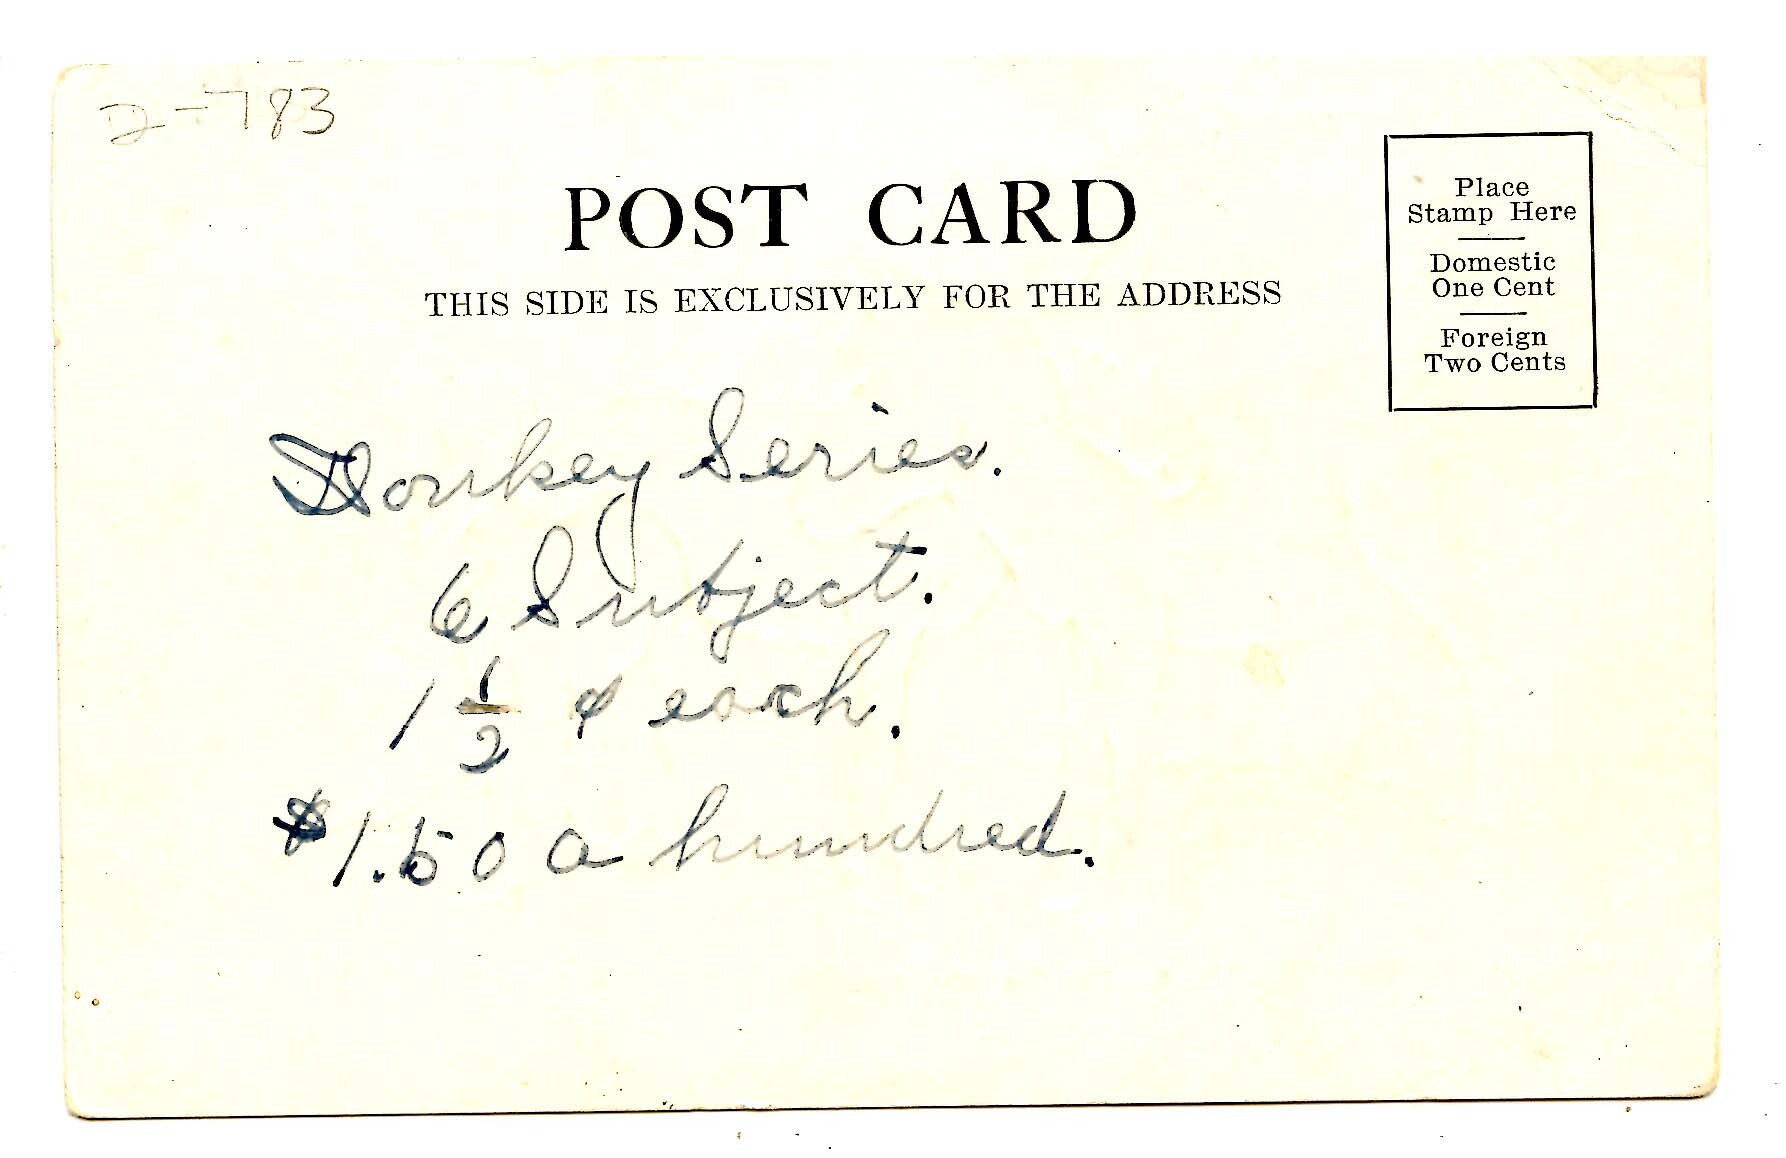 D-783
POST CARD
THIS SIDE IS EXCLUSIVELY FOR THE ADDRESS
Place
Stamp Here
Domestic
One Cent
Foreign
Two Cents
Donkey Series.
6 Subject.
1 1/2 ¢ each.
$1.50 a hundred.